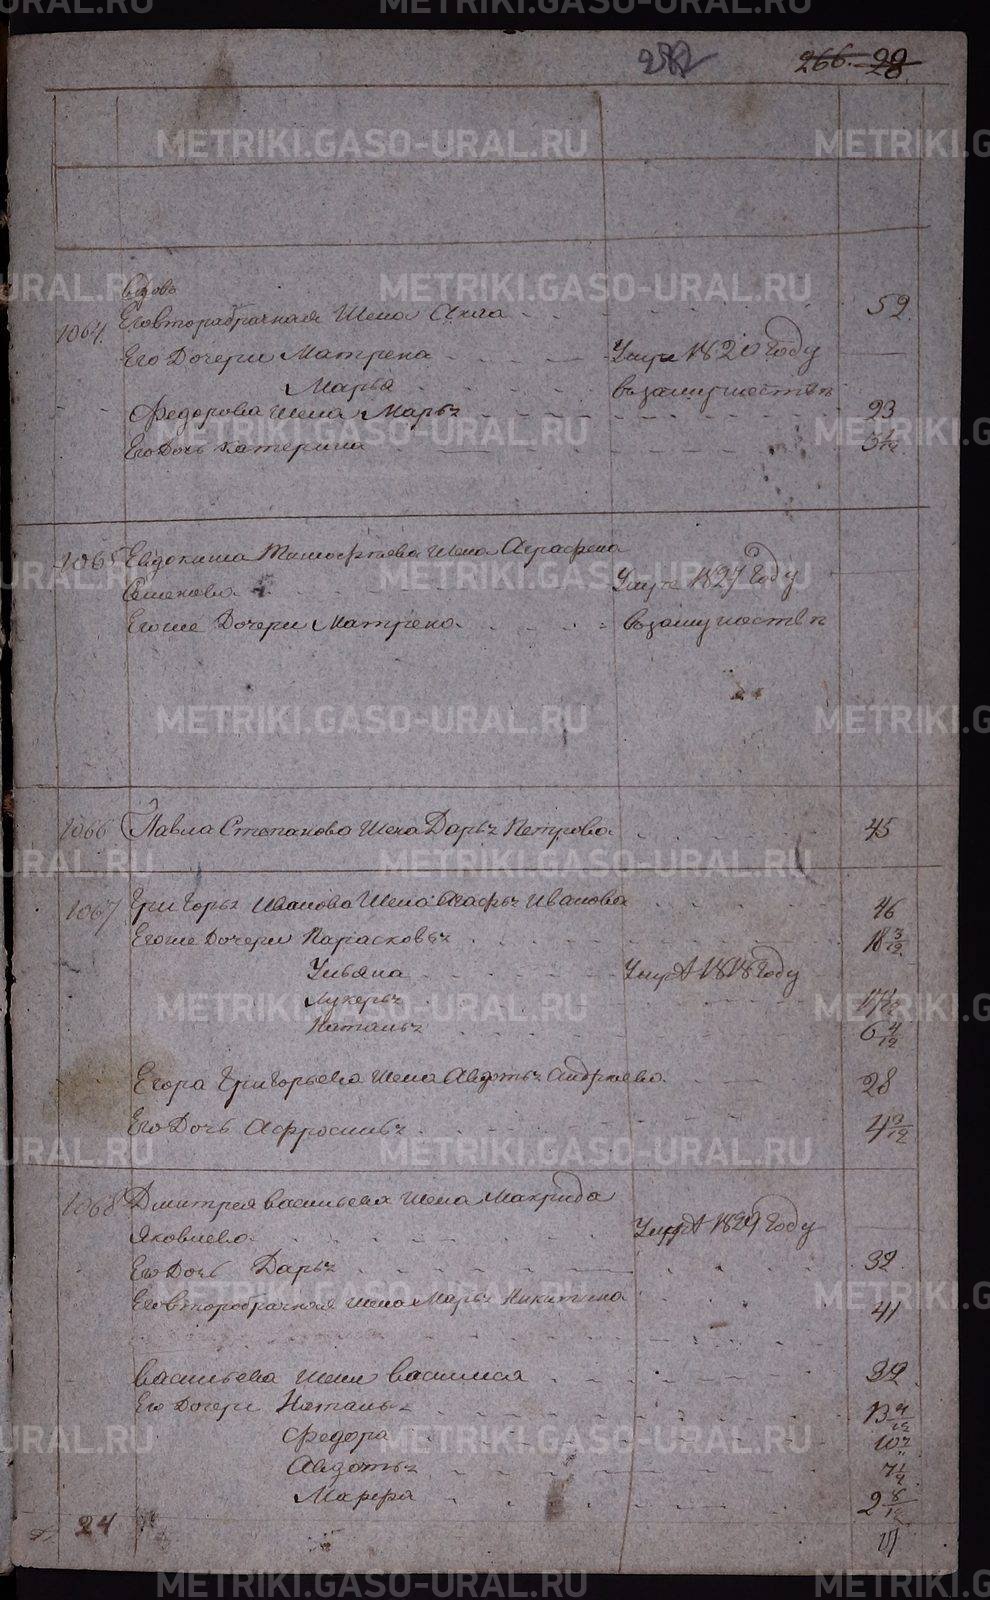 METRIKI.GASO-URAL.RU
282 266. 28
вдовъ
1064. Еговторабрачная жена Анна 59
Его Дочери Матрена Умре 1820 Году
Марья взамужеств
Федорова жена Марья 23
Его Дочь Катерина
1065 Евдокима Тимофеева жена Аграфена
Семенова Умре 1827 Году
Егоже Дочери Матрена взамужеств
1066 Павла Степанова жена Дарья Петрова 45
1067 Григорья Иванова жена Агафья Иванова 46
Егоже Дочери Парасковья 18 3/12
Ульяна Умре 1818 Году
Лукерья
Наталья 6 4/12
Егора Григорьева жена Авдотья Андреева 28
Его Дочь Афросинья 4
1068 Дмитрея васильева жена Макрида
Яковлева Умре 1829 Году
Его Дочь Дарья 32
Еговторобрачная жена Марья Никитина 41
васильева жена василиса 32
Его Дочери Наталья 13
Федора 10
Авдотья 7
Марфа 2 8/12
24